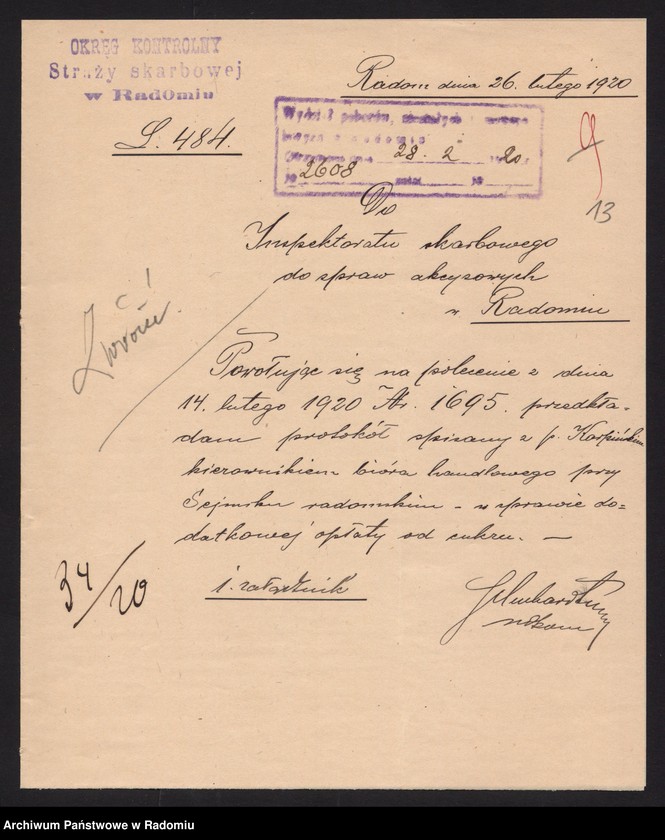 OKRĘG KONTROLNY
Straży skarbowej
w Radomiu
Radom dnia 26. lutego 1920
L. 484.
Wydział poborów,
28. 2 20
№ 2608 №
9
13
Do
Inspektoratu skarbowego
do spraw akcyzowych
w Radomiu
Zwrócić!
Powołując się na polecenie z dnia
14. lutego 1920 Nr. 1695. przedkła-
dam protokół spisany z p. Karpińskim
kierownikiem bióra handlowego przy
Sejmiku radomskim - w sprawie do-
datkowej opłaty od cukru. —
34/20
1. załącznik